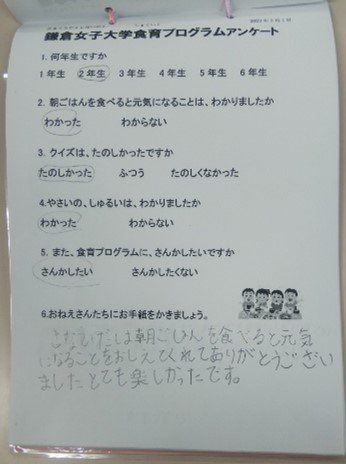 鎌倉女子大学食育プログラムアンケート
1. 何年生ですか
1年生 2年生 3年生 4年生 5年生 6年生
2. 朝ごはんを食べると元気になることは、わかりましたか
わかった わからない
3. クイズは、たのしかったですか
たのしかった ふつう たのしくなかった
4.やさいの、しゅるいは、わかりましたか
わかった わからない
5. また、食育プログラムに、さんかしたいですか
さんかしたい さんかしたくない
6.おねえさんたちにお手紙をかきましょう。
は朝ごはんを食べると元気
になることをおしえてくれてありがとうござい
ましたとても楽しかったです。